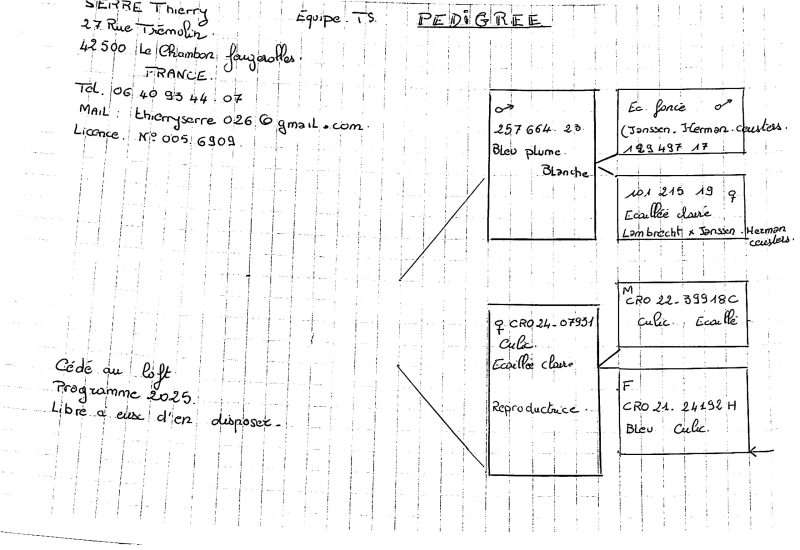 SERRE Thierry
27 Rue Trémolin.
42500 Le Chambon feugerolles.
FRANCE.
Tél. 06 40 93 44 07
MAIL: thierryserre026@gmail.com.
Licence. N° 005 6909
Équipe. TS.
PEDIGREE
♂
257 664. 23
Bleu plume.
Blanche
Ec foncé ♂
(Janssen. Herman. ceusters.
129 497 17
101 215 19 ♀
Ecaillée claire
Lambrecht x Janssen. Herman
ceusters.
♀ CRO 24-07931
Culic.
Ecaillée claire
Reproductrice.
M
CRO 22-39918C
Culic. Ecaillé
F
CRO 21. 24192 H
Bleu Culic.
Cédé au loft
Programme 2025.
Libre a eux d'en disposer.